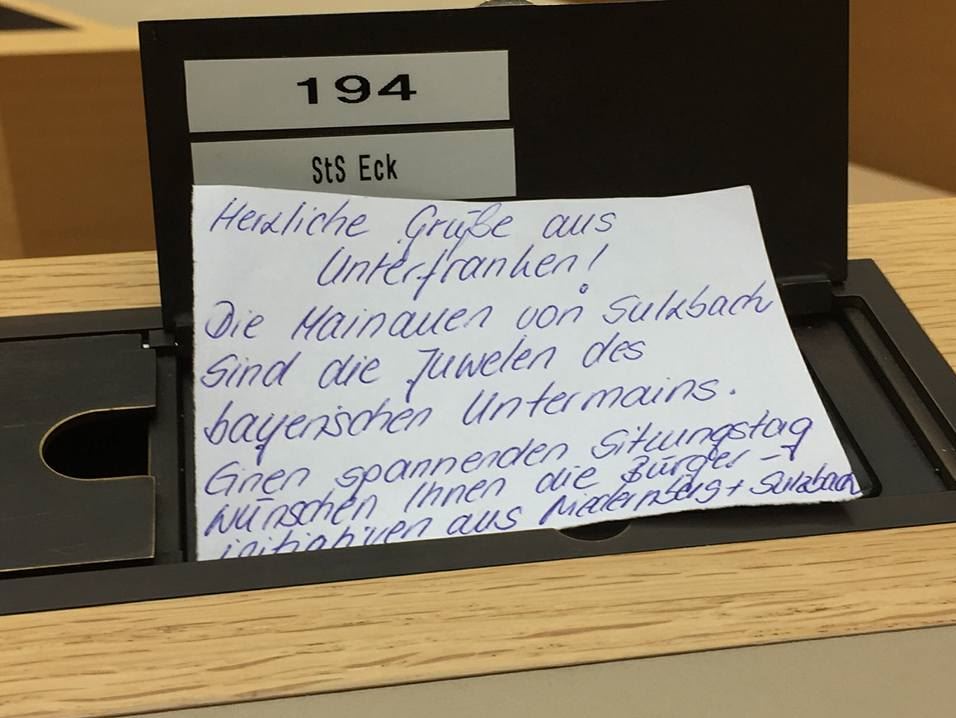 194
StS Eck
Herzliche Grüße aus
Unterfranken!
Die Mainauen von Sulzbach
sind die Juwelen des
bayerischen Untermains.
Einen spannenden Sitzungstag
wünschen Ihnen die Bürger-
initiativen aus + Sulzbach